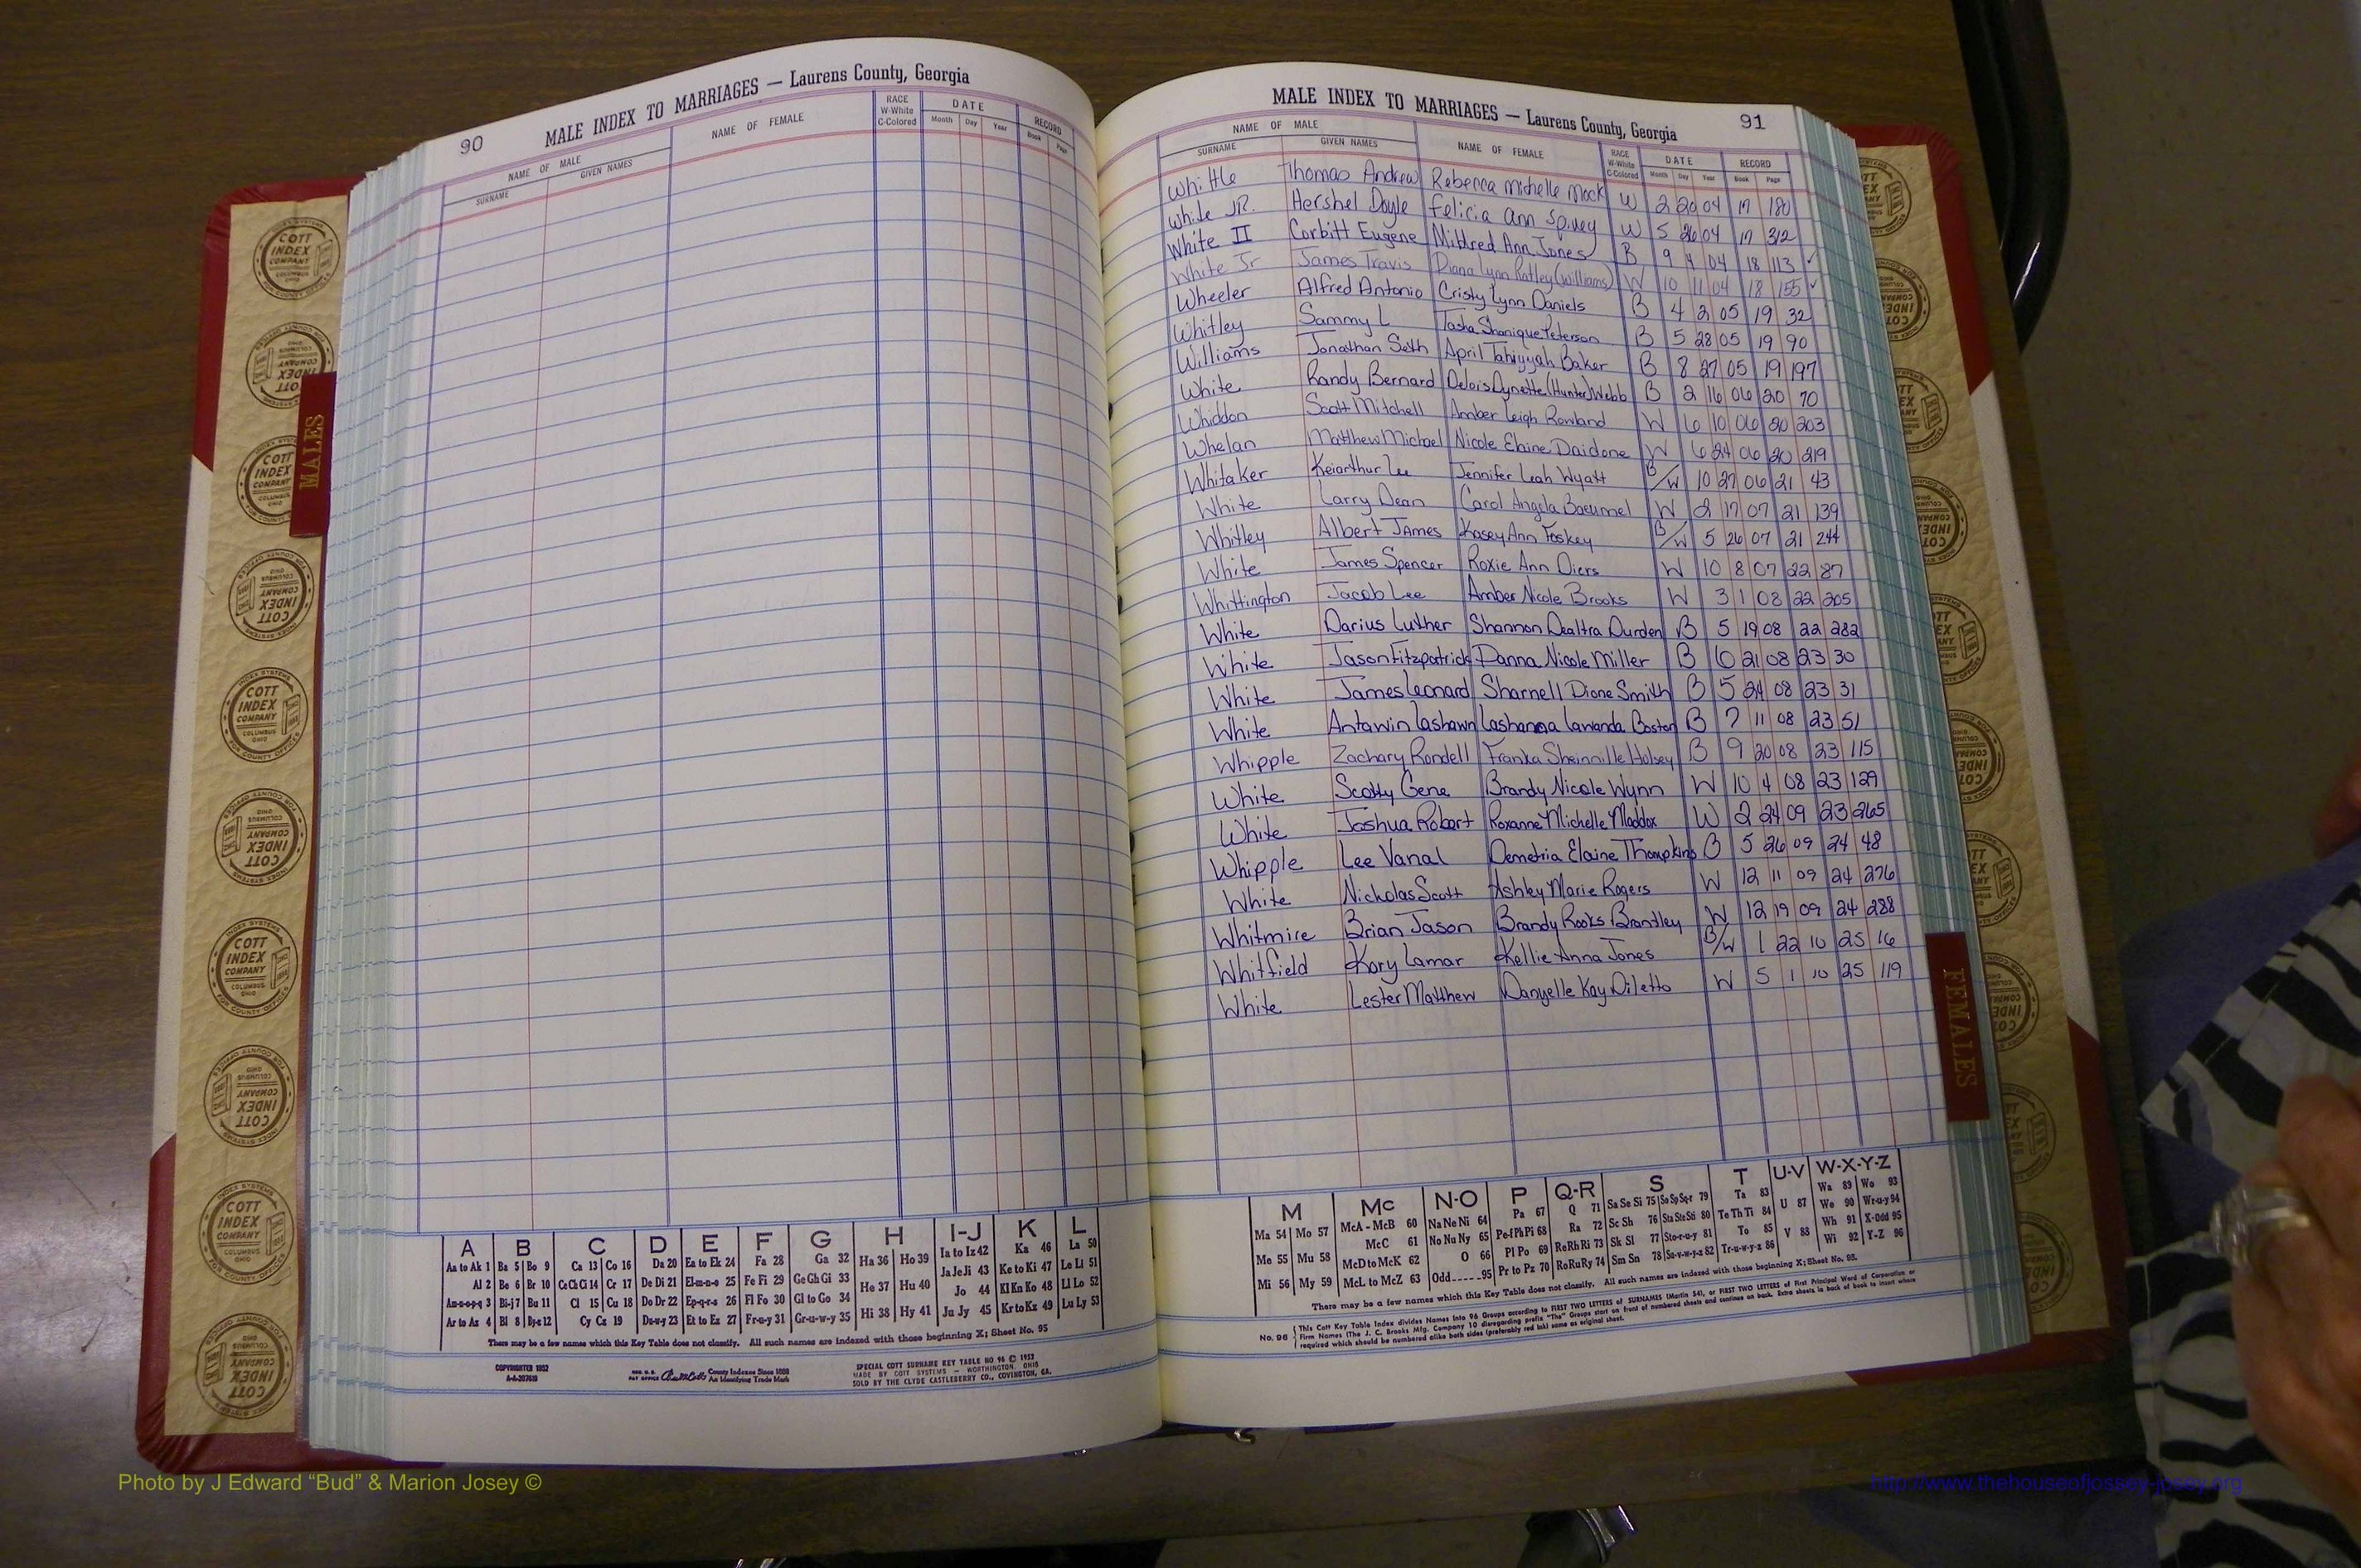 90 MALE INDEX TO MARRIAGES — Laurens County, Georgia
NAME OF MALE NAME OF FEMALE RACE W-White C-Colored DATE RECORD
SURNAME GIVEN NAMES Month Day Year Book Page
MALES
COTT INDEX COMPANY COLUMBUS OHIO
INDEX SYSTEMS FOR COUNTY OFFICES
A B C D E F G H I-J K L
Aa to Ak 1 Ba 5 Bo 9 Ca 13 Co 16 Da 20 Ea to Ek 24 Fa 28 Ga 32 Ha 36 Ho 39 Ia to Iz 42 Ka 46 La 50
Al 2 Be 6 Br 10 Ce Ch Ci 14 Cr 17 De Di 21 El-m-n-o 25 Fe Fi 29 Ge Gh Gi 33 He 37 Hu 40 Ja Je Ji 43 Ke to Ki 47 Le Li 51
Am-n-o-p-q 3 Bi-j 7 Bu 11 Cl 15 Cu 18 Do Dr 22 Ep-q-r-s 26 Fl Fo 30 Gl to Go 34 Hi 38 Hy 41 Jo 44 Kl Kn Ko 48 Ll Lo 52
Ar to Az 4 Bl 8 By-z 12 Cy Cz 19 Du-w-y 23 Et to Ez 27 Fr-u-y 31 Gr-u-w-y 35 Ju Jy 45 Kr to Kz 49 Lu Ly 53
There may be a few names which this Key Table does not classify. All such names are indexed with those beginning X; Sheet No. 95
COPYRIGHTED 1952
County Indexes Since 1888
An Identifying Trade Mark
SPECIAL COTT SURNAME KEY TABLE NO 96 © 1952
MADE BY COTT SYSTEMS — WORTHINGTON, OHIO
SOLD BY THE CLYDE CASTLEBERRY CO., COVINGTON, GA.
MALE INDEX TO MARRIAGES — Laurens County, Georgia 91
NAME OF MALE NAME OF FEMALE RACE W-White C-Colored DATE RECORD
SURNAME GIVEN NAMES Month Day Year Book Page
Whittle Thomas Andrew Rebecca Michelle Mock W 2 20 04 17 180
White JR. Hershel Doyle Felicia Ann Spivey W 5 26 04 17 312
White II Corbitt Eugene Mildred Ann Jones B 9 4 04 18 113
White Jr James Travis Diana Lynn Ratley (Williams) W 10 11 04 18 155
Wheeler Alfred Antonio Cristy Lynn Daniels B 4 2 05 19 32
Whitley Sammy L Tasha Shanique Peterson B 5 28 05 19 90
Williams Jonathan Seth April Tahiyyah Baker B 8 27 05 19 197
White Randy Bernard Delois Dynette (Hunter) Webb B 2 16 06 20 70
Whiddon Scott Mitchell Amber Leigh Rowland W 6 10 06 20 203
Whelan Matthew Michael Nicole Elaine Daidone W 6 24 06 20 219
Whitaker Keiarthur Lee Jennifer Leah Wyatt B/W 10 27 06 21 43
White Larry Dean Carol Angela Baeumel W 2 17 07 21 139
Whitley Albert James Kasey Ann Foskey B/W 5 26 07 21 244
White James Spencer Roxie Ann Diers W 10 8 07 22 87
Whittington Jacob Lee Amber Nicole Brooks W 3 1 08 22 205
White Darius Luther Shannon Dealtra Durden B 5 19 08 22 282
White Jason Fitzpatrick Danna Nicole Miller B 6 21 08 23 30
White James Leonard Sharnell Dione Smith B 5 24 08 23 31
White Antawin Lashawn Lashanna Lawanda Boston B 7 11 08 23 51
Whipple Zachary Rondell Franka Sheinnille Holsey B 9 20 08 23 115
White Scotty Gene Brandy Nicole Wynn W 10 4 08 23 129
White Joshua Robert Roxanne Michelle Maddox W 2 24 09 23 265
Whipple Lee Vanal Demetria Elaine Thompkins B 5 26 09 24 48
White Nicholas Scott Ashley Marie Rogers W 12 11 09 24 276
Whitmire Brian Jason Brandy Rooks Brantley W 12 19 09 24 288
Whitfield Kory Lamar Kellie Anna Jones B/W 1 22 10 25 16
White Lester Matthew Danyelle Kay Diletto W 5 1 10 25 119
FEMALES
M Mc N-O P Q-R S T U-V W-X-Y-Z
Ma 54 Mo 57 McA - McB 60 Na Ne Ni 64 Pa 67 Q 71 Sa Se Si 75 So Sp Sq-r 79 Ta 83 U 87 Wa 89 Wo 93
Me 55 Mu 58 McC 61 No Nu Ny 65 Pe-f Ph Pi 68 Ra 72 Sc Sh 76 Sta Ste Sti 80 Te Th Ti 84 V 88 We 90 Wr-u-y 94
Mi 56 My 59 McD to McK 62 O 66 Pl Po 69 Re Rh Ri 73 Sk Sl 77 Sto-r-u-y 81 To 85 Wh 91 X-Odd 95
McL to McZ 63 Odd-----95 Pr to Pz 70 Ro Ru Ry 74 Sm Sn 78 Su-v-w-y-z 82 Tr-u-w-y-z 86 Wi 92 Y-Z 96
There may be a few names which this Key Table does not classify. All such names are indexed with those beginning X; Sheet No. 95.
No. 96 { This Cott Key Table Index divides Names into 96 Groups according to FIRST TWO LETTERS of SURNAMES (Martin 54), or FIRST TWO LETTERS of First Principal Word of Corporation or
Firm Names (The J. C. Brooks Mfg. Company 10 disregarding prefix "The" Groups start on front of numbered sheets and continue on back. Extra sheets in back of book to insert where
required which should be numbered alike both sides (preferably red ink) same as original sheet.
Photo by J Edward “Bud” & Marion Josey ©
http://www.thehouseofjossey-josey.org